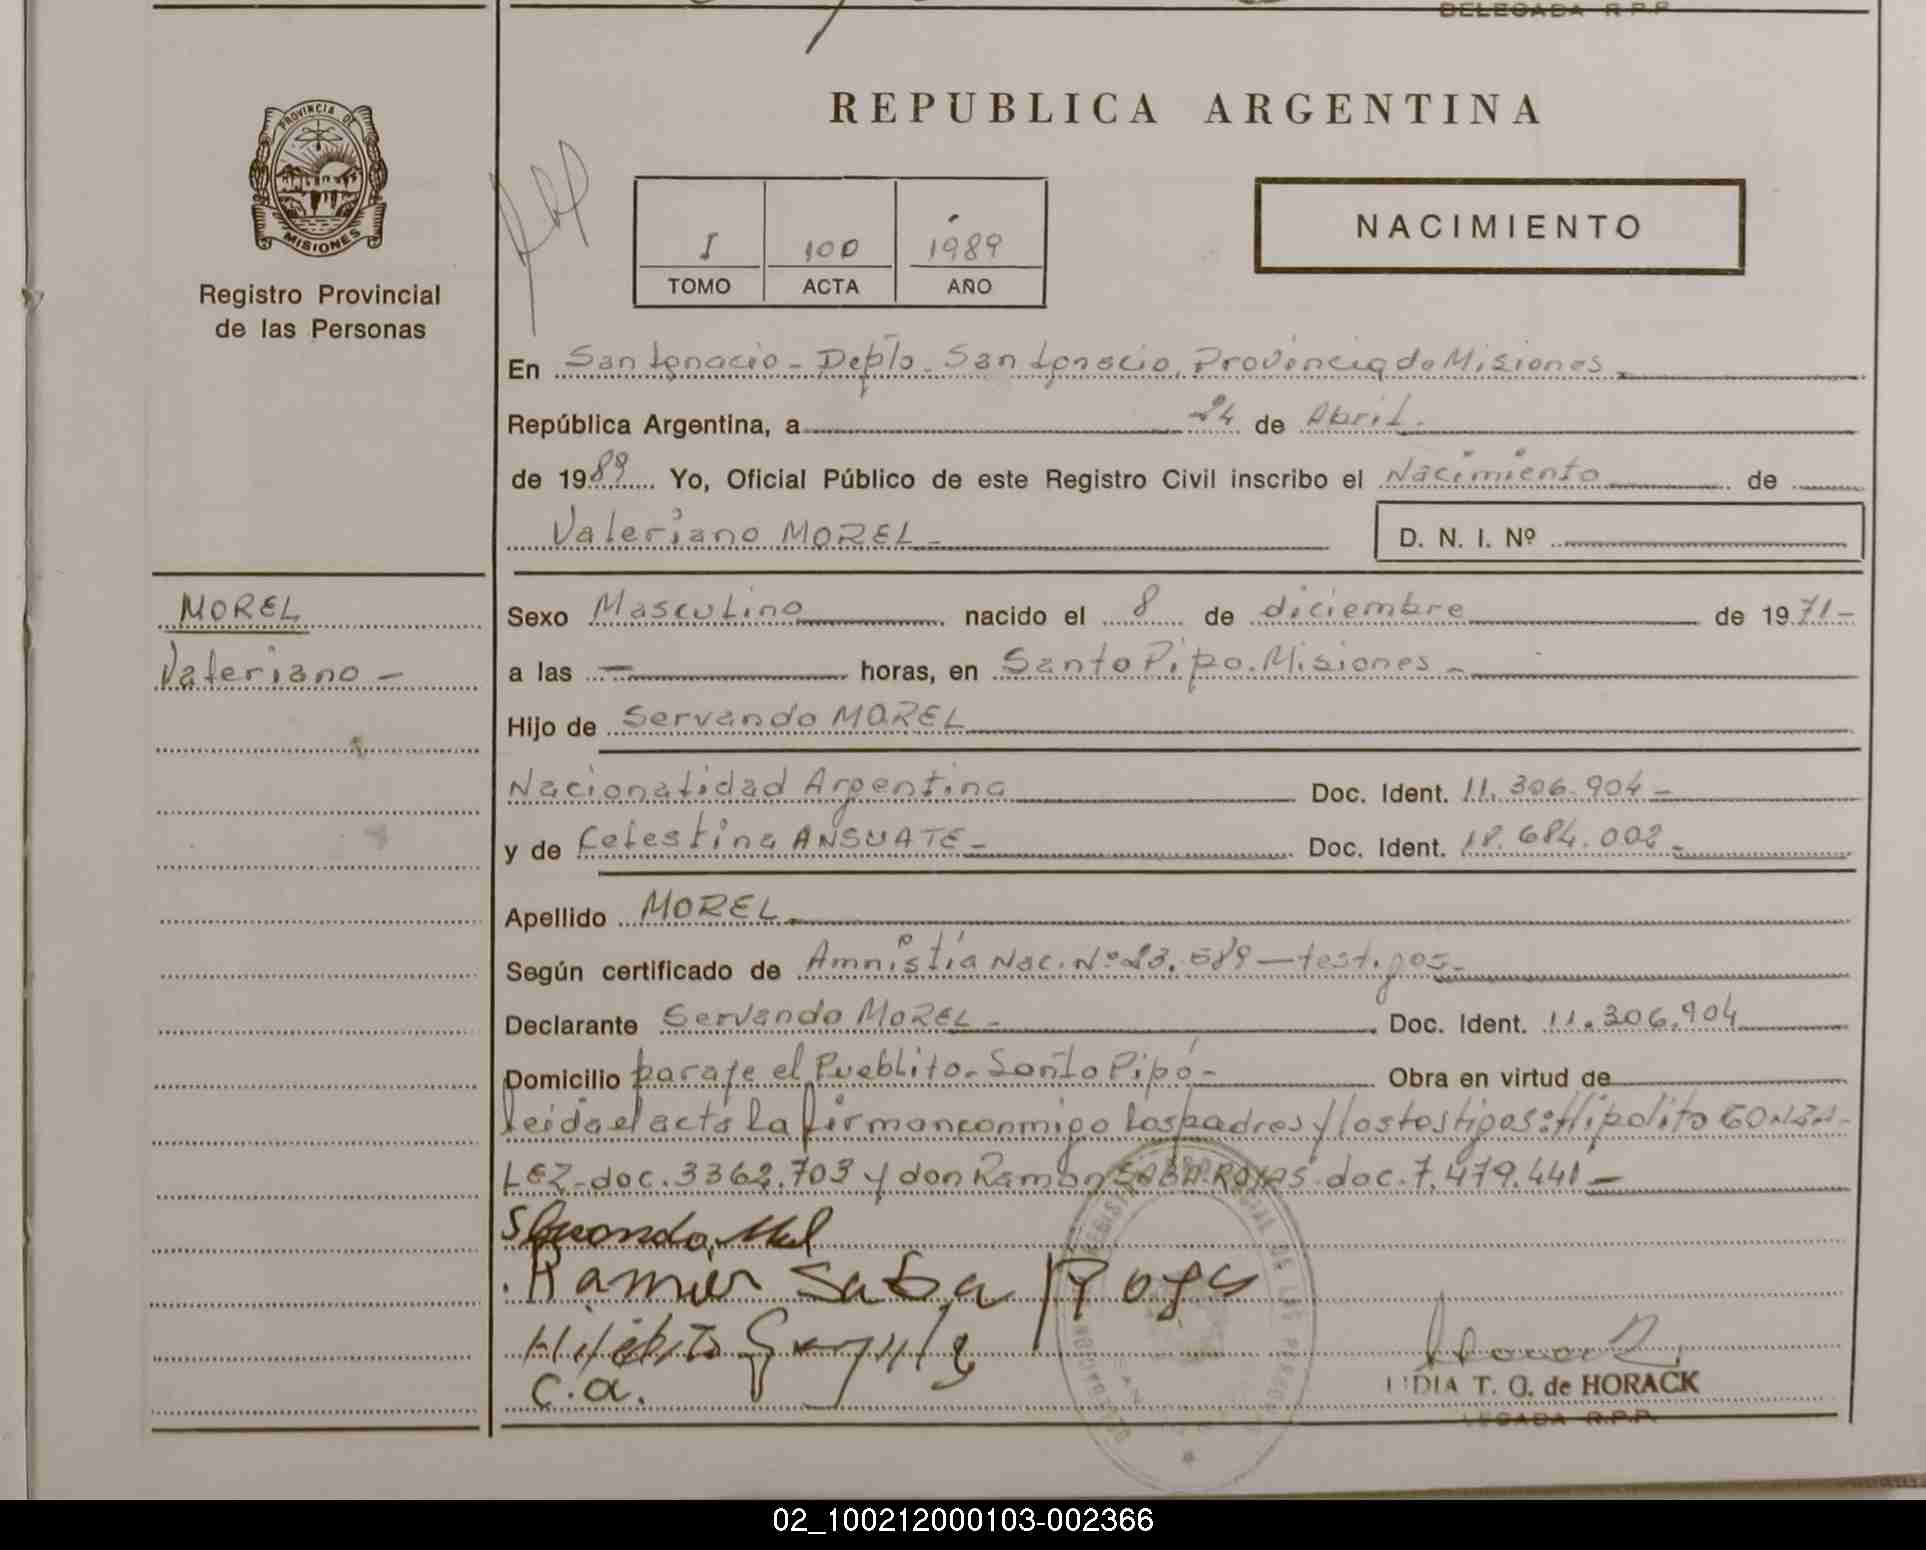 DELEGADA R.P.P.
PROVINCIA DE
MISIONES
Registro Provincial
de las Personas
REPUBLICA ARGENTINA
I 100 1989
TOMO ACTA AÑO
NACIMIENTO
En San Ignacio - Depto. San Ignacio, Provincia de Misiones
República Argentina, a 24 de Abril.
de 1989 Yo, Oficial Público de este Registro Civil inscribo el Nacimiento de
Valeriano MOREL - D. N. I. Nº
MOREL
Valeriano -
Sexo Masculino nacido el 8 de diciembre de 1971-
a las — horas, en Santo Pipo. Misiones -
Hijo de Servando MOREL
Nacionalidad Argentina Doc. Ident. 11.306.904 -
y de Celestina ANSUATE - Doc. Ident. 18.684.002 -
Apellido MOREL
Según certificado de Amnistía Nac. Nº 23.589 - testigos -
Declarante Servando MOREL - Doc. Ident. 11.306.904
Domicilio paraje el Pueblito - Santo Pipó - Obra en virtud de
leida el acta la firman conmigo los padres y los testigos: Hipolito GONZA-
LEZ - doc. 3362.703 y don Ramon SABA ROJAS - doc. 7.479.441 -
Ramon Saba Rojas
C.a.
LIDIA T. O. de HORACK
LEGADA R.P.P.
02_100212000103-002366